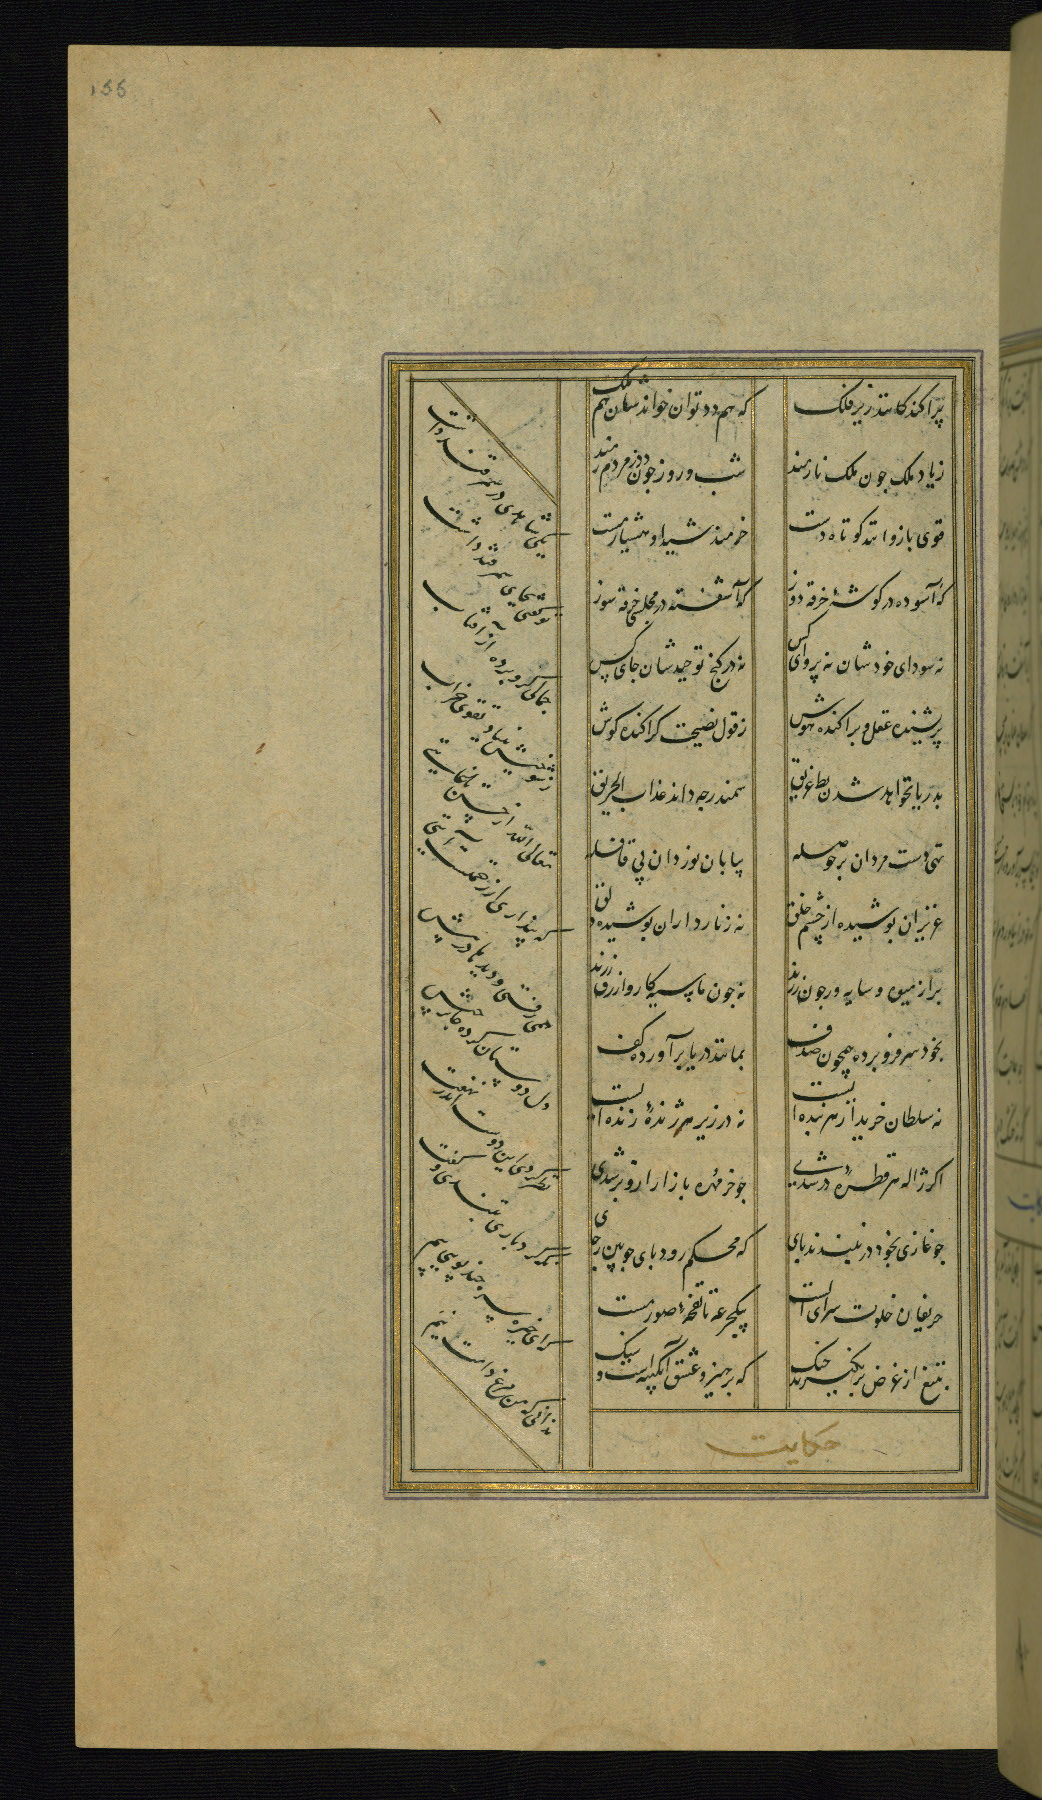 155
پراکندگانند زیر فلک
که هم دد توان خواندشان هم ملک
ز یاد ملک چون ملک نارمند
شب و روز چون دد ز مردم رمند
قوی بازوانند کوتاه دست
خردمند شیدا و هشیار مست
که آسوده در گوشهٔ خرقه دوز
که آشفته در مجلسی خرقه سوز
نه سودای خودشان نه پروای کس
نه در کنج توحیدشان جای کس
پریشیده عقل و پراکنده هوش
ز قول نصیحت گر آکنده گوش
بدریا نخواهد شدن بط غریق
سمندر چه داند عذاب الحریق
تهی دست مردان پر حوصله
بیابان نوردان بی قافله
عزیزان پوشیده از چشم خلق
نه زنارداران پوشیده دلق
پر از میوه و سایه ور چون رزند
نه چون ما سیه کار و ازرق رزند
بخود سر فرو برده همچون صدف
نه مانند دریا برآورده کف
نه سلطان خریدار هر بنده ایست
نه در زیر هر ژندهٔ زنده ایست
اگر ژاله هر قطرهٔ در شدی
چو خرمهره بازار ازو پر شدی
چو غازی بخود در نبندند پای
که محکم رود پای چوبین ز جای
حریفان خلوت سرای الست
بیک جرعه تا نفخهٔ صور مست
بتیغ از غرض برنگیرند چنگ
که پرهیز و عشق آبگینه است و سنگ
حکایت
یکی شاهدی در سمرقند داشت
تو گفتی بجای سمر قند داشت
جمالی گرو برده از آفتاب
ز شوخیش بنیاد تقوی خراب
تعالی الله از حسن تا غایتی
که پنداری از رحمتست آیتی
همی رفتی و دیده‌ها در پیش
دل دوستان کرده جان برخیش
نظر کردی این دوست در وی نهفت
نگه کرد باری بتندی و گفت
که ای خیره سر چند پویی پیم
ندانی که من مرغ دامت نیم